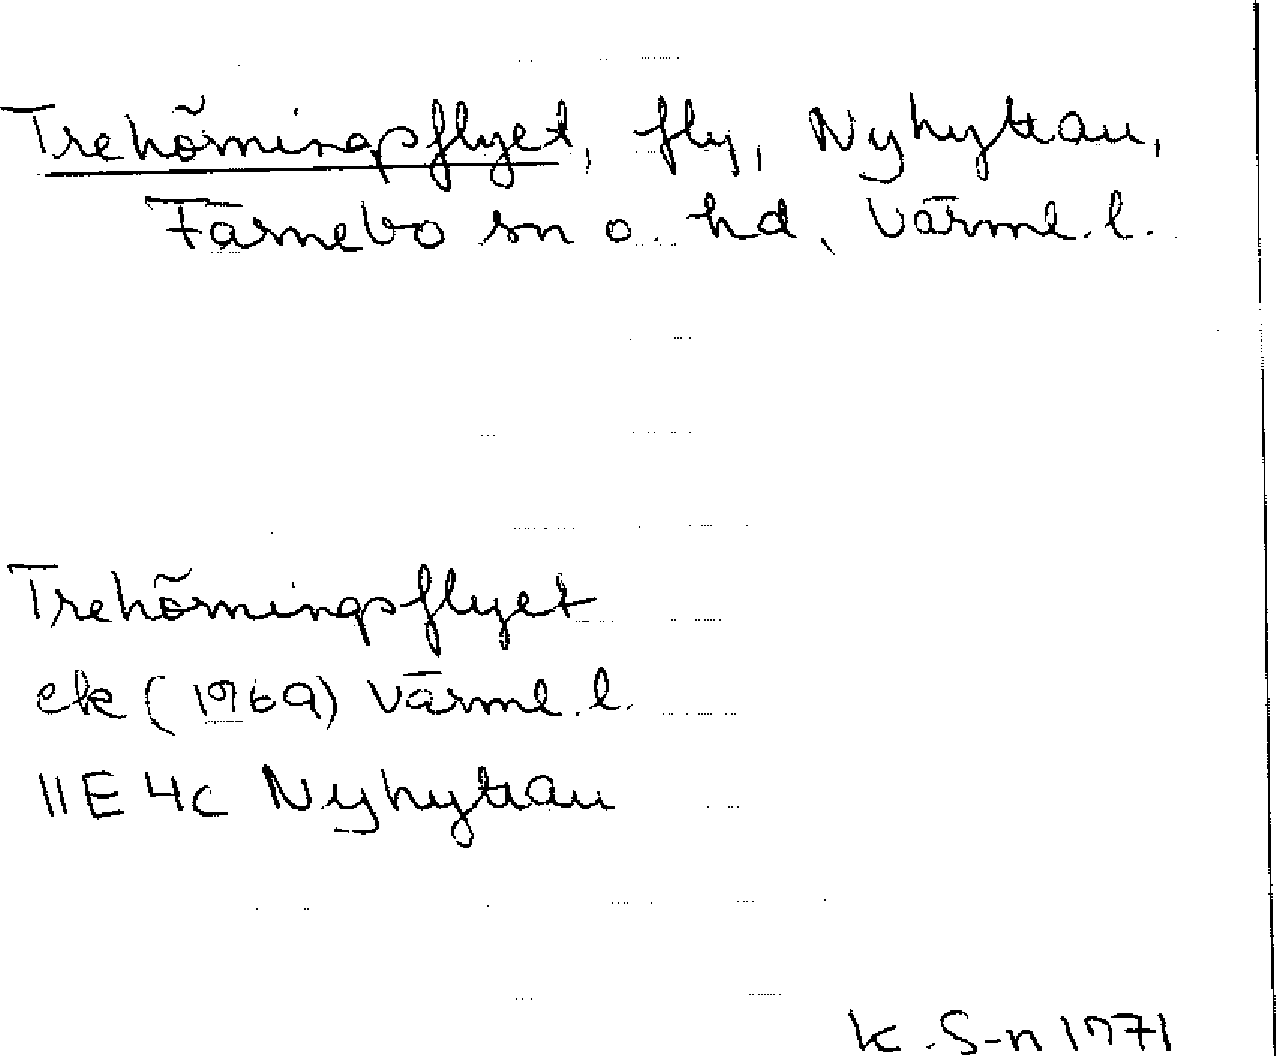 Trehörningsflyet, fly, Nyhyttan,
Färnebo sn o. hd, Värml. l.
Trehörningsflyet
ek (1969) Värml. l.
11E 4c Nyhyttan
K. S-n 1971